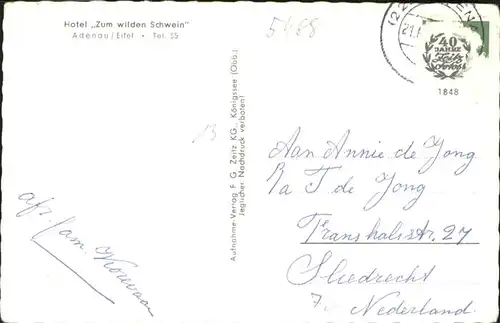 Hotel „Zum wilden Schwein"
Adenau/Eifel • Tel. 55
5468
(22
EN
21.
40
JAHRE
Zeitz
1848
Aufnahme-Verlag F. G. Zeitz KG., Königssee (Obb.)
Jeglicher Nachdruck verboten!
13
Aan Annie de Jong
p/a T de Jong
Franshalsstr. 27
Sliedrecht
Nederland.
afz. fam.